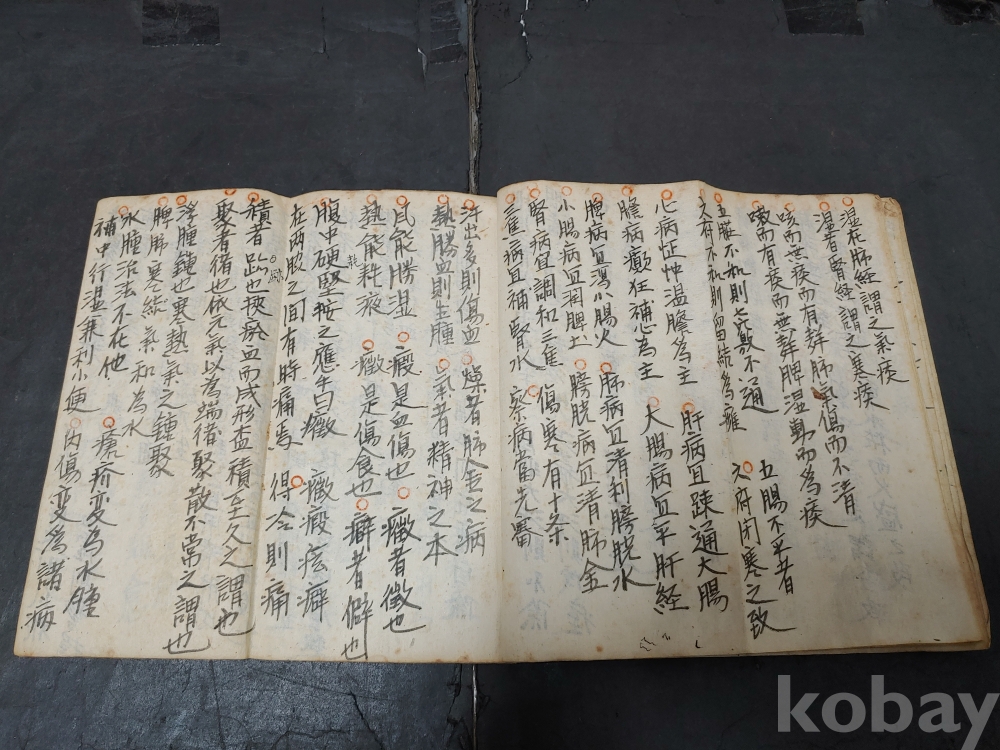 湿在肺経謂之氣痰
湿者腎経謂之寒痰
咳而無痰而有声 肺氣傷而不清
嗽而有痰而無声 脾湿動而為痰
五臟不和則七竅不通 五腸不平者
六府不和則留結為癰 六府閉寒之致
心病怔忡温膽為主 肝病宜疎通大腸
膽病癲狂補心為主 大腸病宜平肝経
脾病宜瀉小腸火 肺病宜清利膀胱水
小腸病宜潤脾土 膀胱病宜清肺金
腎病宜調和三隹 傷寒有十条
三隹病宜補腎水 察病當先審
汗出多則傷血 燥者肺金之病
熱勝血則生腫 氣者精神之本
風能勝湿 瘕是血傷也 癥者徵也
熱能耗液 癥是傷食也 癖者僻也
腹中硬堅按之應手曰癥 癥瘕痃癖
在两股之间有時痛焉 得冷則痛
積者跡也挾瘀血而成形盃積至久之謂也
聚者绪也依元氣以為端绪聚散不常之謂也
浮腫鍾也寒熱氣之鍾聚
脾肺寒结氣和為水
水腫治法不在他 瘡疥变為水腫
補中行湿兼利小便 内傷变為諸病
kobay